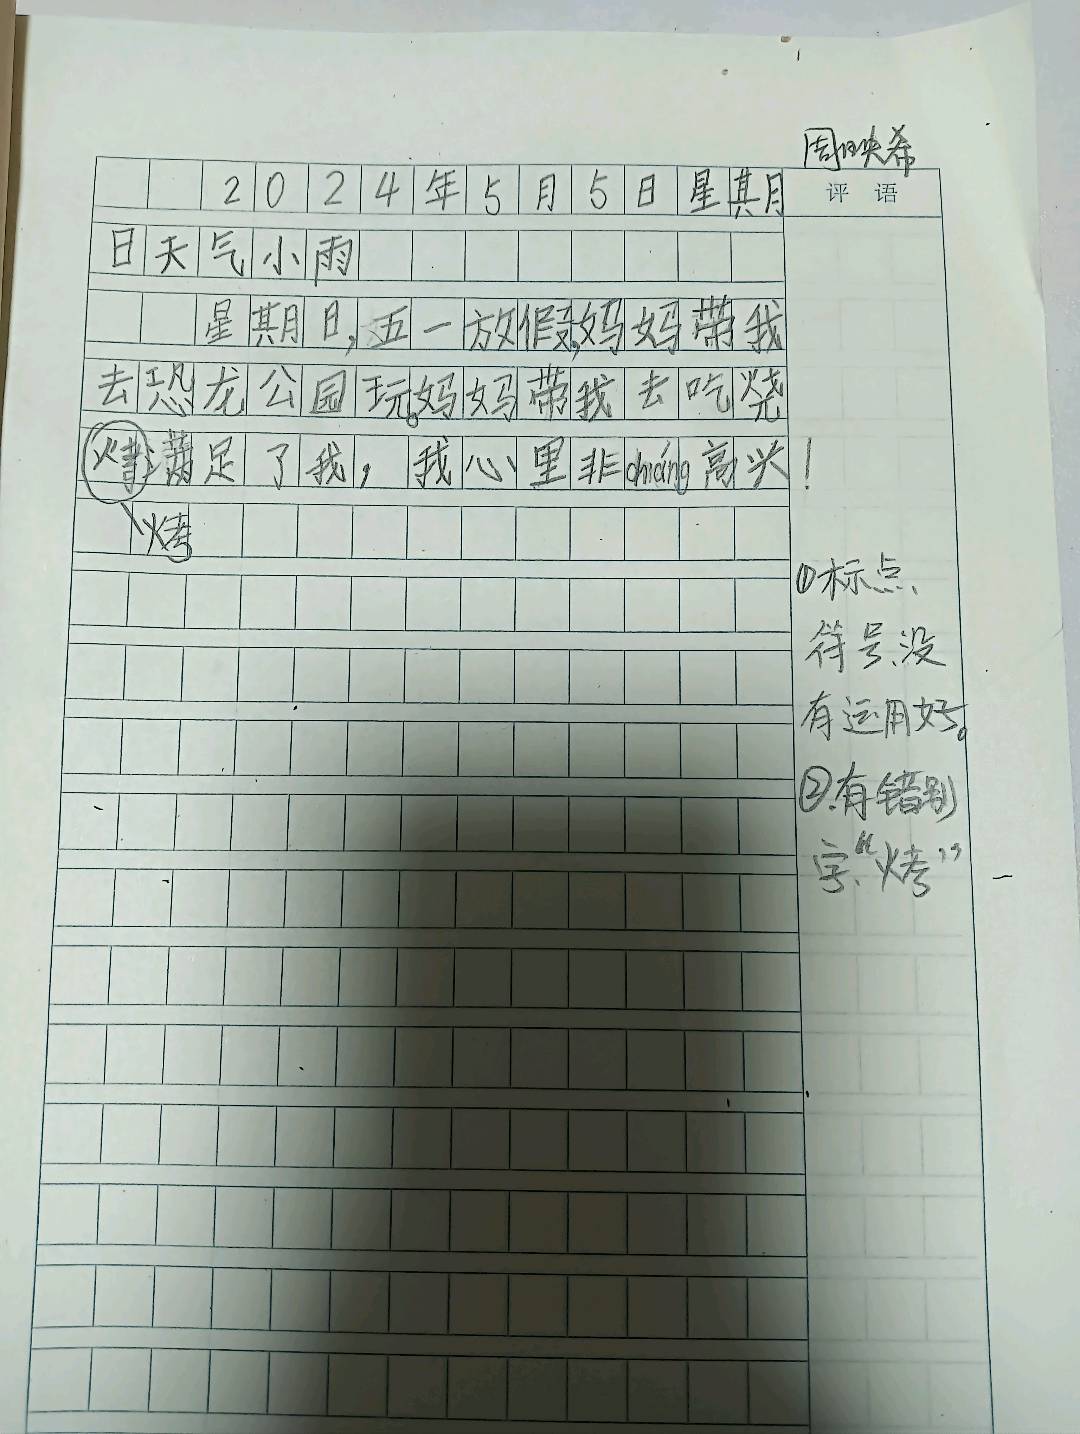 周映希
2024年5月5日星期
评语
日天气小雨
星期日,五一放假,妈妈带我
去恐龙公园玩。妈妈带我去吃烧
满足了我,我心里非cháng高兴!
烤
①标点、
符号、没
有运用好。
②.有错别
字、“烤”